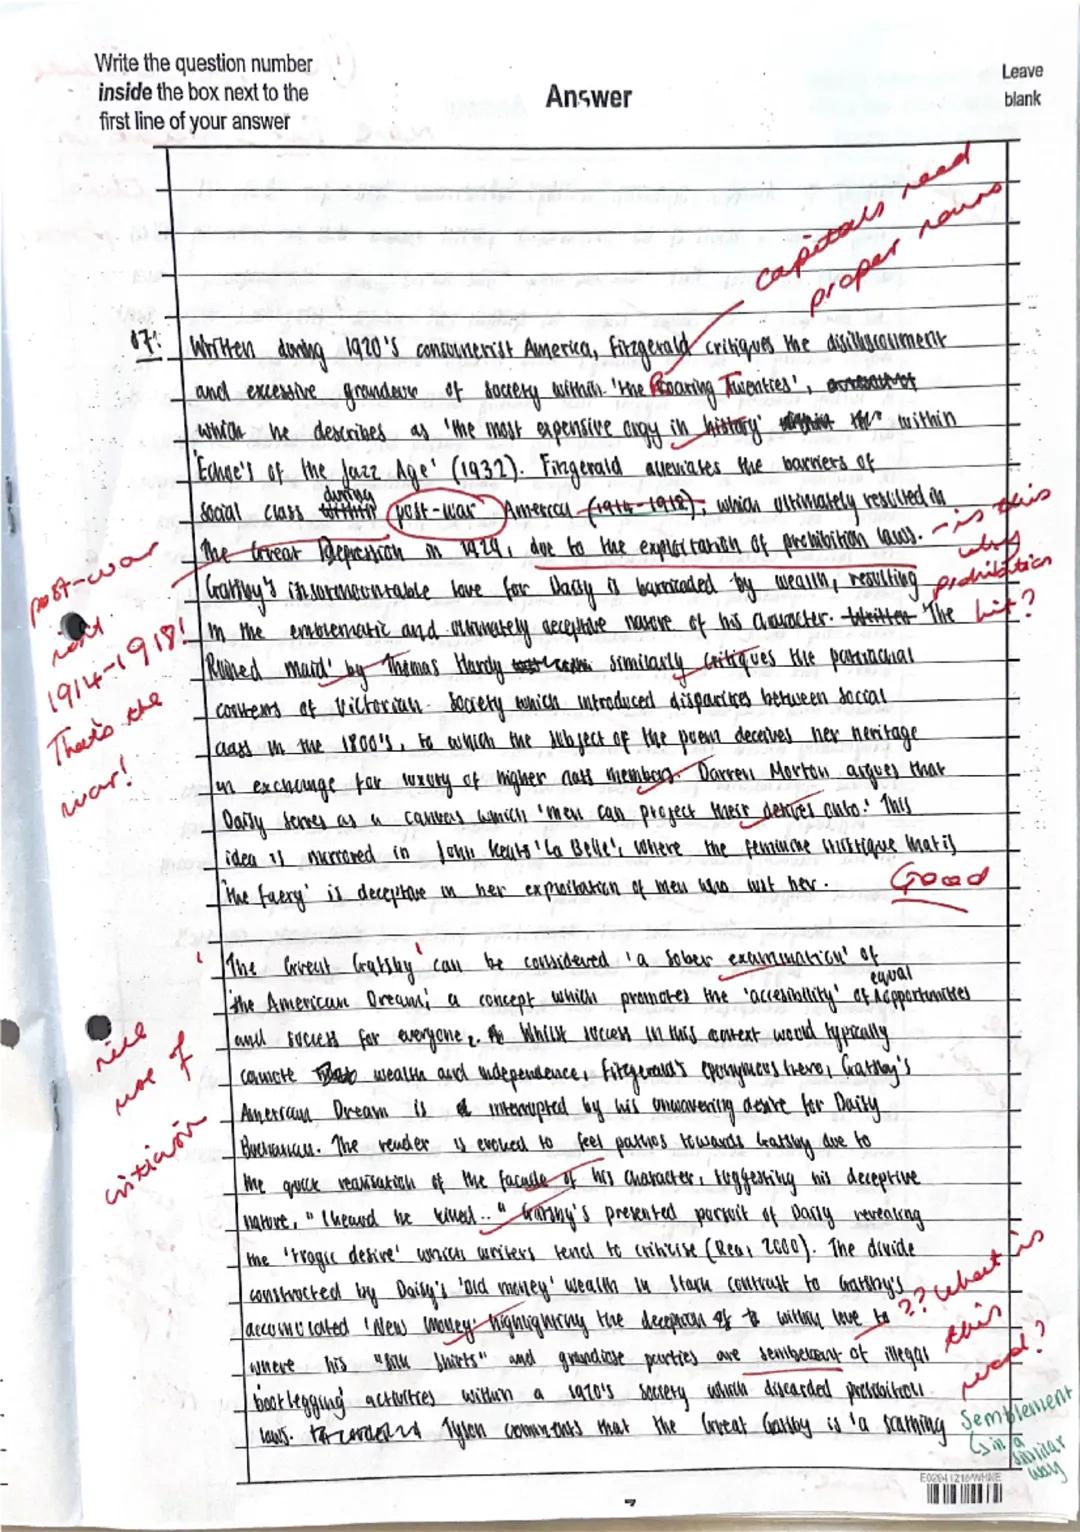 Write the question number
inside the box next to the
first line of your answer
Answer
Leave
blank
capitals need
proper nouns
07:
Written during 1920's consumerist America, Fitzgerald critiques the disillusionment
and excessive grandeur of society within 'the Roaring Twenties',
which he describes as 'the most expensive orgy in history' within
'Echoe's of the Jazz Age' (1932). Fitzgerald alleviates the barriers of
social class during 'post-war' America (1914-1918); which ultimately resulted in
The Great Depression in 1929, due to the exploitation of prohibition laws.
- is this
why
prohibition
hit?
Gatsby's insurmountable love for Daisy is barricaded by wealth, resulting
in the emblematic and ultimately deceptive nature of his character. Written 'The
Ruined maid' by Thomas Hardy similarly critiques the patriarchal
contexts of Victorian society which introduced disparities between social
class in the 1800's, to which the subject of the poem deceives her heritage
in exchange for luxury of higher class members. Darren Morton argues that
Daisy serves as a canvas which 'men can project their desires onto.' This
idea is mirrored in John Keats 'La Belle', where the feminine mistique that is
'the faery' is deceptive in her exploitation of men who lust her.
Good
post-war
not
1914-1918!
That's the
war!
'The Great Gatsby' can be considered 'a sober examination' of
the American Dream; a concept which promotes the 'accesibility' of equal opportunities
and success for everyone. Whilst success in this context would typically
connote wealth and independence, Fitzgerald's eponymous hero, Gatsby's
American Dream is interrupted by his unwavering desire for Daisy
Buchanan. The reader is evoked to feel pathos towards Gatsby due to
the quick realisation of the facade of his character, suggesting his deceptive
nature, "I heard he killed.." Gatsby's presented pursuit of Daisy revealing
the 'tragic desire' which writers tend to criticise (Rea, 2000). The divide
constructed by Daisy's 'Old money' wealth in stark contrast to Gatsby's
accumulated 'New Money' highlighting the deception of within love to
where his "silk shirts" and grandiose parties are semblement of illegal
'bootlegging' activities within a 1920's society which discarded prohibition
laws. Tylon comments that the Great Gatsby is 'a scathing
nice
use of
criticism
?? what is
this
word?
Semblement
↳ in a
similar
way
E02941216/WHINE
7